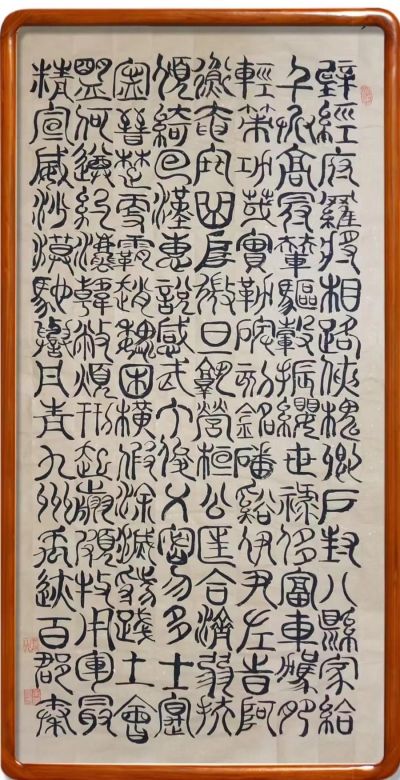 壁經府羅將相路俠槐卿戶封八縣家給
千兵高冠輦驅轂振纓世祿侈富車駕肥
輕策功茂實勒碑刻銘磻溪伊尹佐時阿
衡奄宅曲阜微旦孰營桓公匡合濟弱扶
傾綺回漢惠說感武丁俊乂密勿多士寔
寧晉楚更霸趙魏困橫假途滅虢踐土會
盟何遵約法韓弊煩刑起翦頗牧用軍最
精宣威沙漠馳譽丹青九州禹跡百郡秦